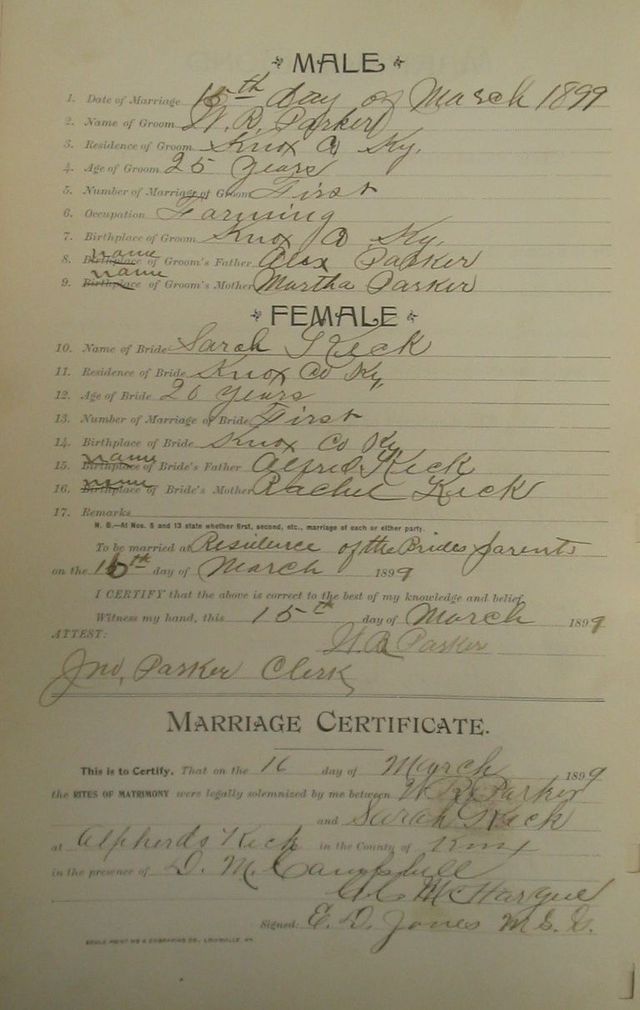 MALE
1. Date of Marriage 15th day of March 1899
2. Name of Groom W. R. Parker
3. Residence of Groom Knox Co Ky.
4. Age of Groom 25 years
5. Number of Marriage of Groom First
6. Occupation Farming
7. Birthplace of Groom Knox Co Ky.
8. Birthplace name of Groom's Father Alex Parker
9. Birthplace name of Groom's Mother Martha Parker
FEMALE
10. Name of Bride Sarah Keck
11. Residence of Bride Knox Co Ky
12. Age of Bride 20 years
13. Number of Marriage of Bride First
14. Birthplace of Bride Knox Co Ky
15. Birthplace name of Bride's Father Alfred Keck
16. Birthplace name of Bride's Mother Rachel Keck
17. Remarks
N. B.—At Nos. 5 and 13 state whether first, second, etc., marriage of each or either party.
To be married at Residence of the Brides parents
on the 16th day of March 1899
I CERTIFY that the above is correct to the best of my knowledge and belief.
Witness my hand, this 15th day of March 1899
ATTEST: W R Parker
Jno, Parker Clerk
MARRIAGE CERTIFICATE.
This is to Certify, That on the 16 day of March 1899
the RITES OF MATRIMONY were legally solemnized by me between W. R. Parker
and Sarah Keck
at Alpherds Keck in the County of Knox
in the presence of D. M. Campbell
McHargue
Signed: E. D. Jones M. G.
LOUISVILLE, KY.